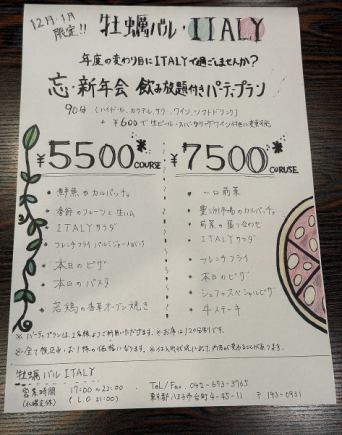 12月・1月
限定!!
牡蠣バル・ITALY
年度の変わり目にITALYで過ごしませんか?
忘・新年会 飲み放題付きパーティプラン
90分 (ハイボール、カクテル、サワー、ワイン、ソフトドリンク)
+ ¥600で生ビール・スパークリングワイン付きに変更可能
¥5500* COURSE
¥7500* COURSE
• 鮮魚のカルパッチョ
• 季節のフルーツと生ハム
ITALYサラダ
• フレンチフライ
• 本日のピザ
• 本日のパスタ
• 若鶏の香草オーブン焼き
• 一口前菜
• 豊洲市場のカルパッチョ
• 前菜の盛り合わせ
• ITALYサラダ
• フレンチフライ
• 本日のピザ
• シェフのスペシャルピザ
• 牛ステーキ
※パーティプランは、2名様よりご利用いただけます。※お席は120分制です。
※全て税込み、お1人様の価格になります。
牡蠣バル ITALY
営業時間 17:00〜22:00
(水曜定休) (L.O 21:00)
Tel/Fax. 042-673-3765
東京都八王子市台町4-45-11 〒193-0931